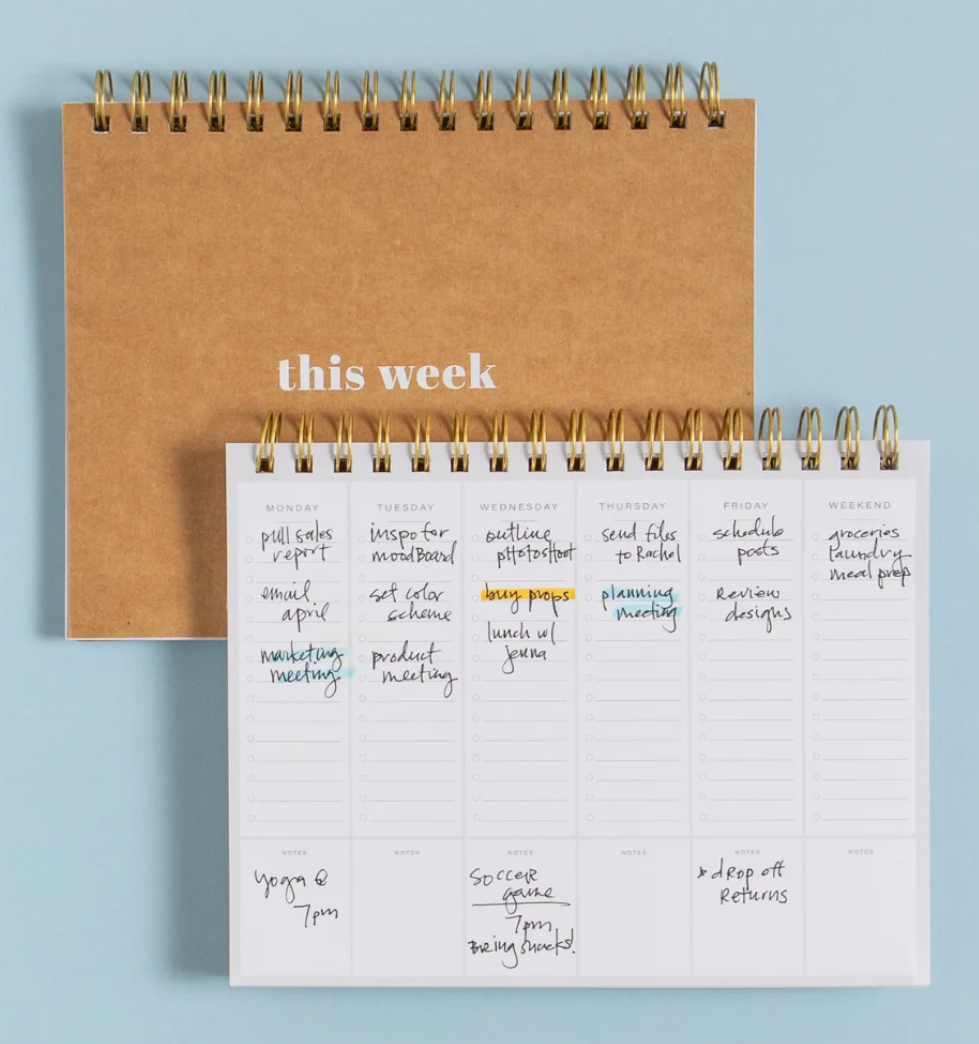 this week
MONDAY
pull sales
report
email
april
marketing
meeting
NOTES
yoga @
7pm
TUESDAY
inspo for
moodBoard
set color
scheme
product
meeting
NOTES
WEDNESDAY
outline
photoshoot
buy props
lunch w/
jenna
NOTES
Soccer
game
7pm
Bring snacks!
THURSDAY
send files
to Rachel
planning
meeting
NOTES
FRIDAY
schedule
posts
Review
designs
NOTES
* drop off
Returns
WEEKEND
groceries
laundry
meal prep
NOTES